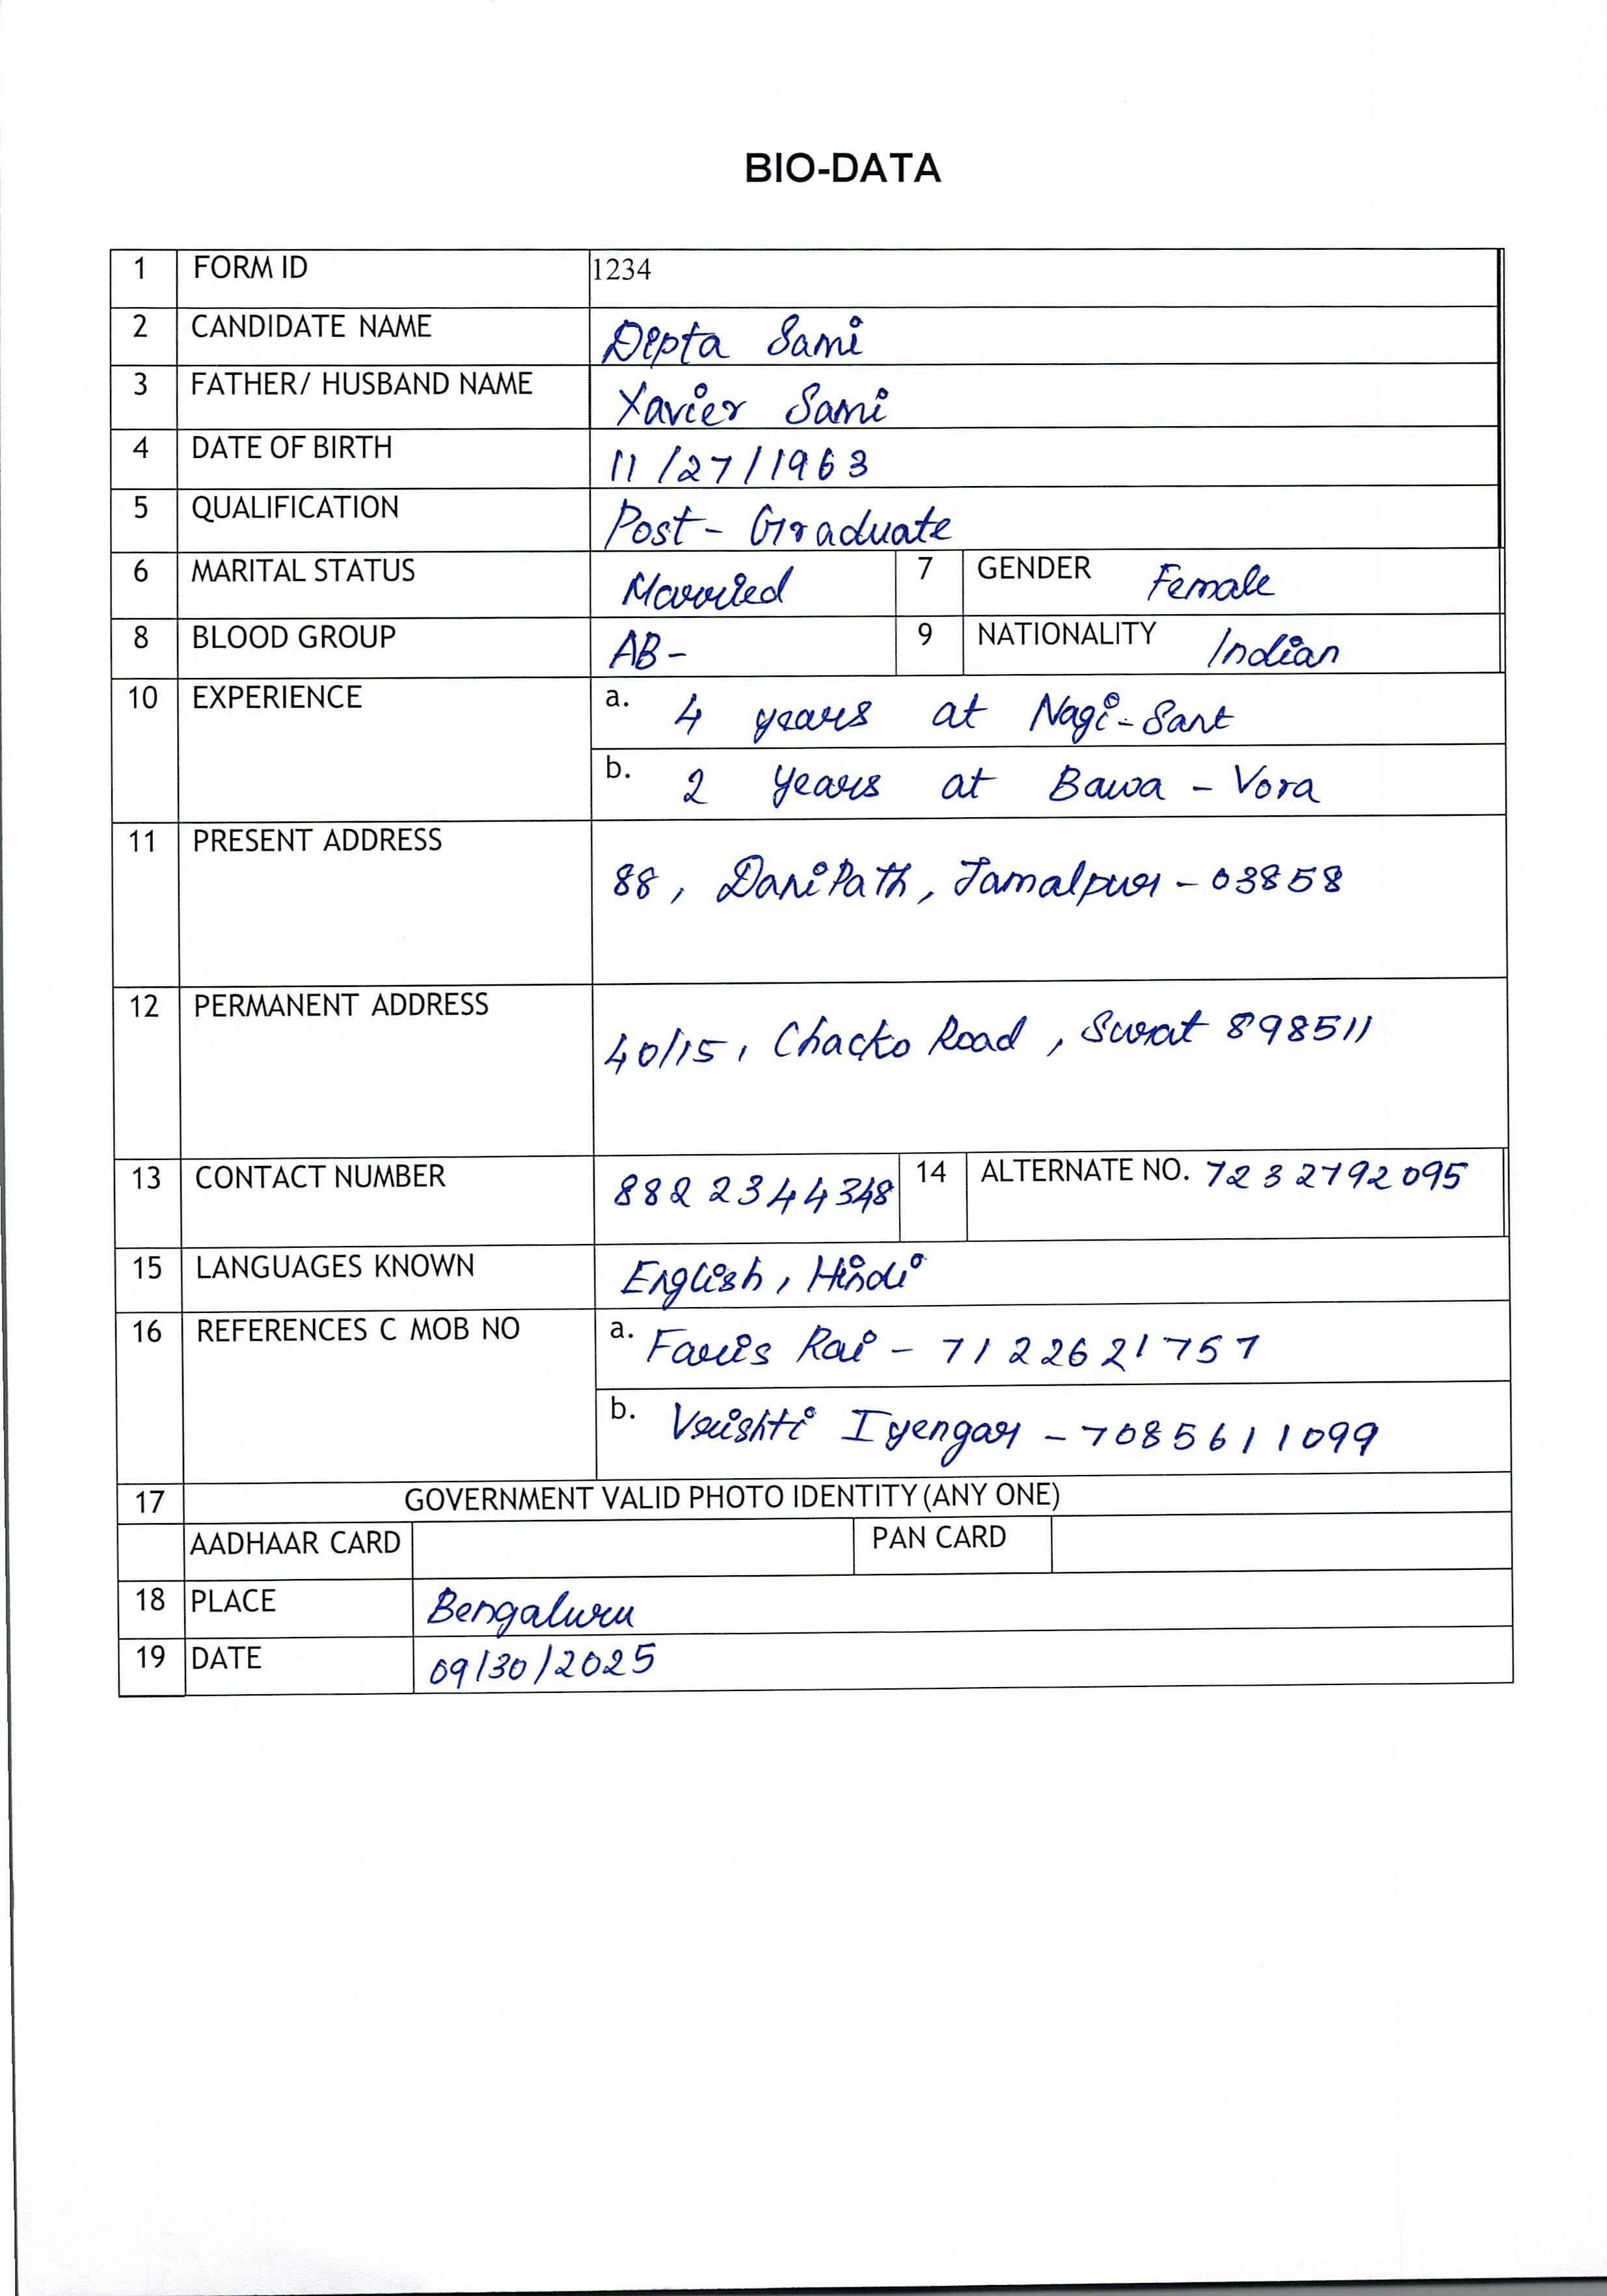 BIO-DATA
1 FORM ID 1234
2 CANDIDATE NAME Dipta Sami
3 FATHER/ HUSBAND NAME Xavier Sami
4 DATE OF BIRTH 11/27/1963
5 QUALIFICATION Post-Graduate
6 MARITAL STATUS Married 7 GENDER Female
8 BLOOD GROUP AB- 9 NATIONALITY Indian
10 EXPERIENCE a. 4 years at Nagi-Sant
b. 2 Years at Bawa-Vora
11 PRESENT ADDRESS
88, Dani Path, Jamalpur-03858
12 PERMANENT ADDRESS
40/15, Chacko Road, Surat 898511
13 CONTACT NUMBER 8822344348 14 ALTERNATE NO. 7232792095
15 LANGUAGES KNOWN English, Hindi
16 REFERENCES C MOB NO a. Faris Rai - 7122621757
b. Vrishti Iyengar - 7085611099
17 GOVERNMENT VALID PHOTO IDENTITY (ANY ONE)
AADHAAR CARD PAN CARD
18 PLACE Bengaluru
19 DATE 09/30/2025